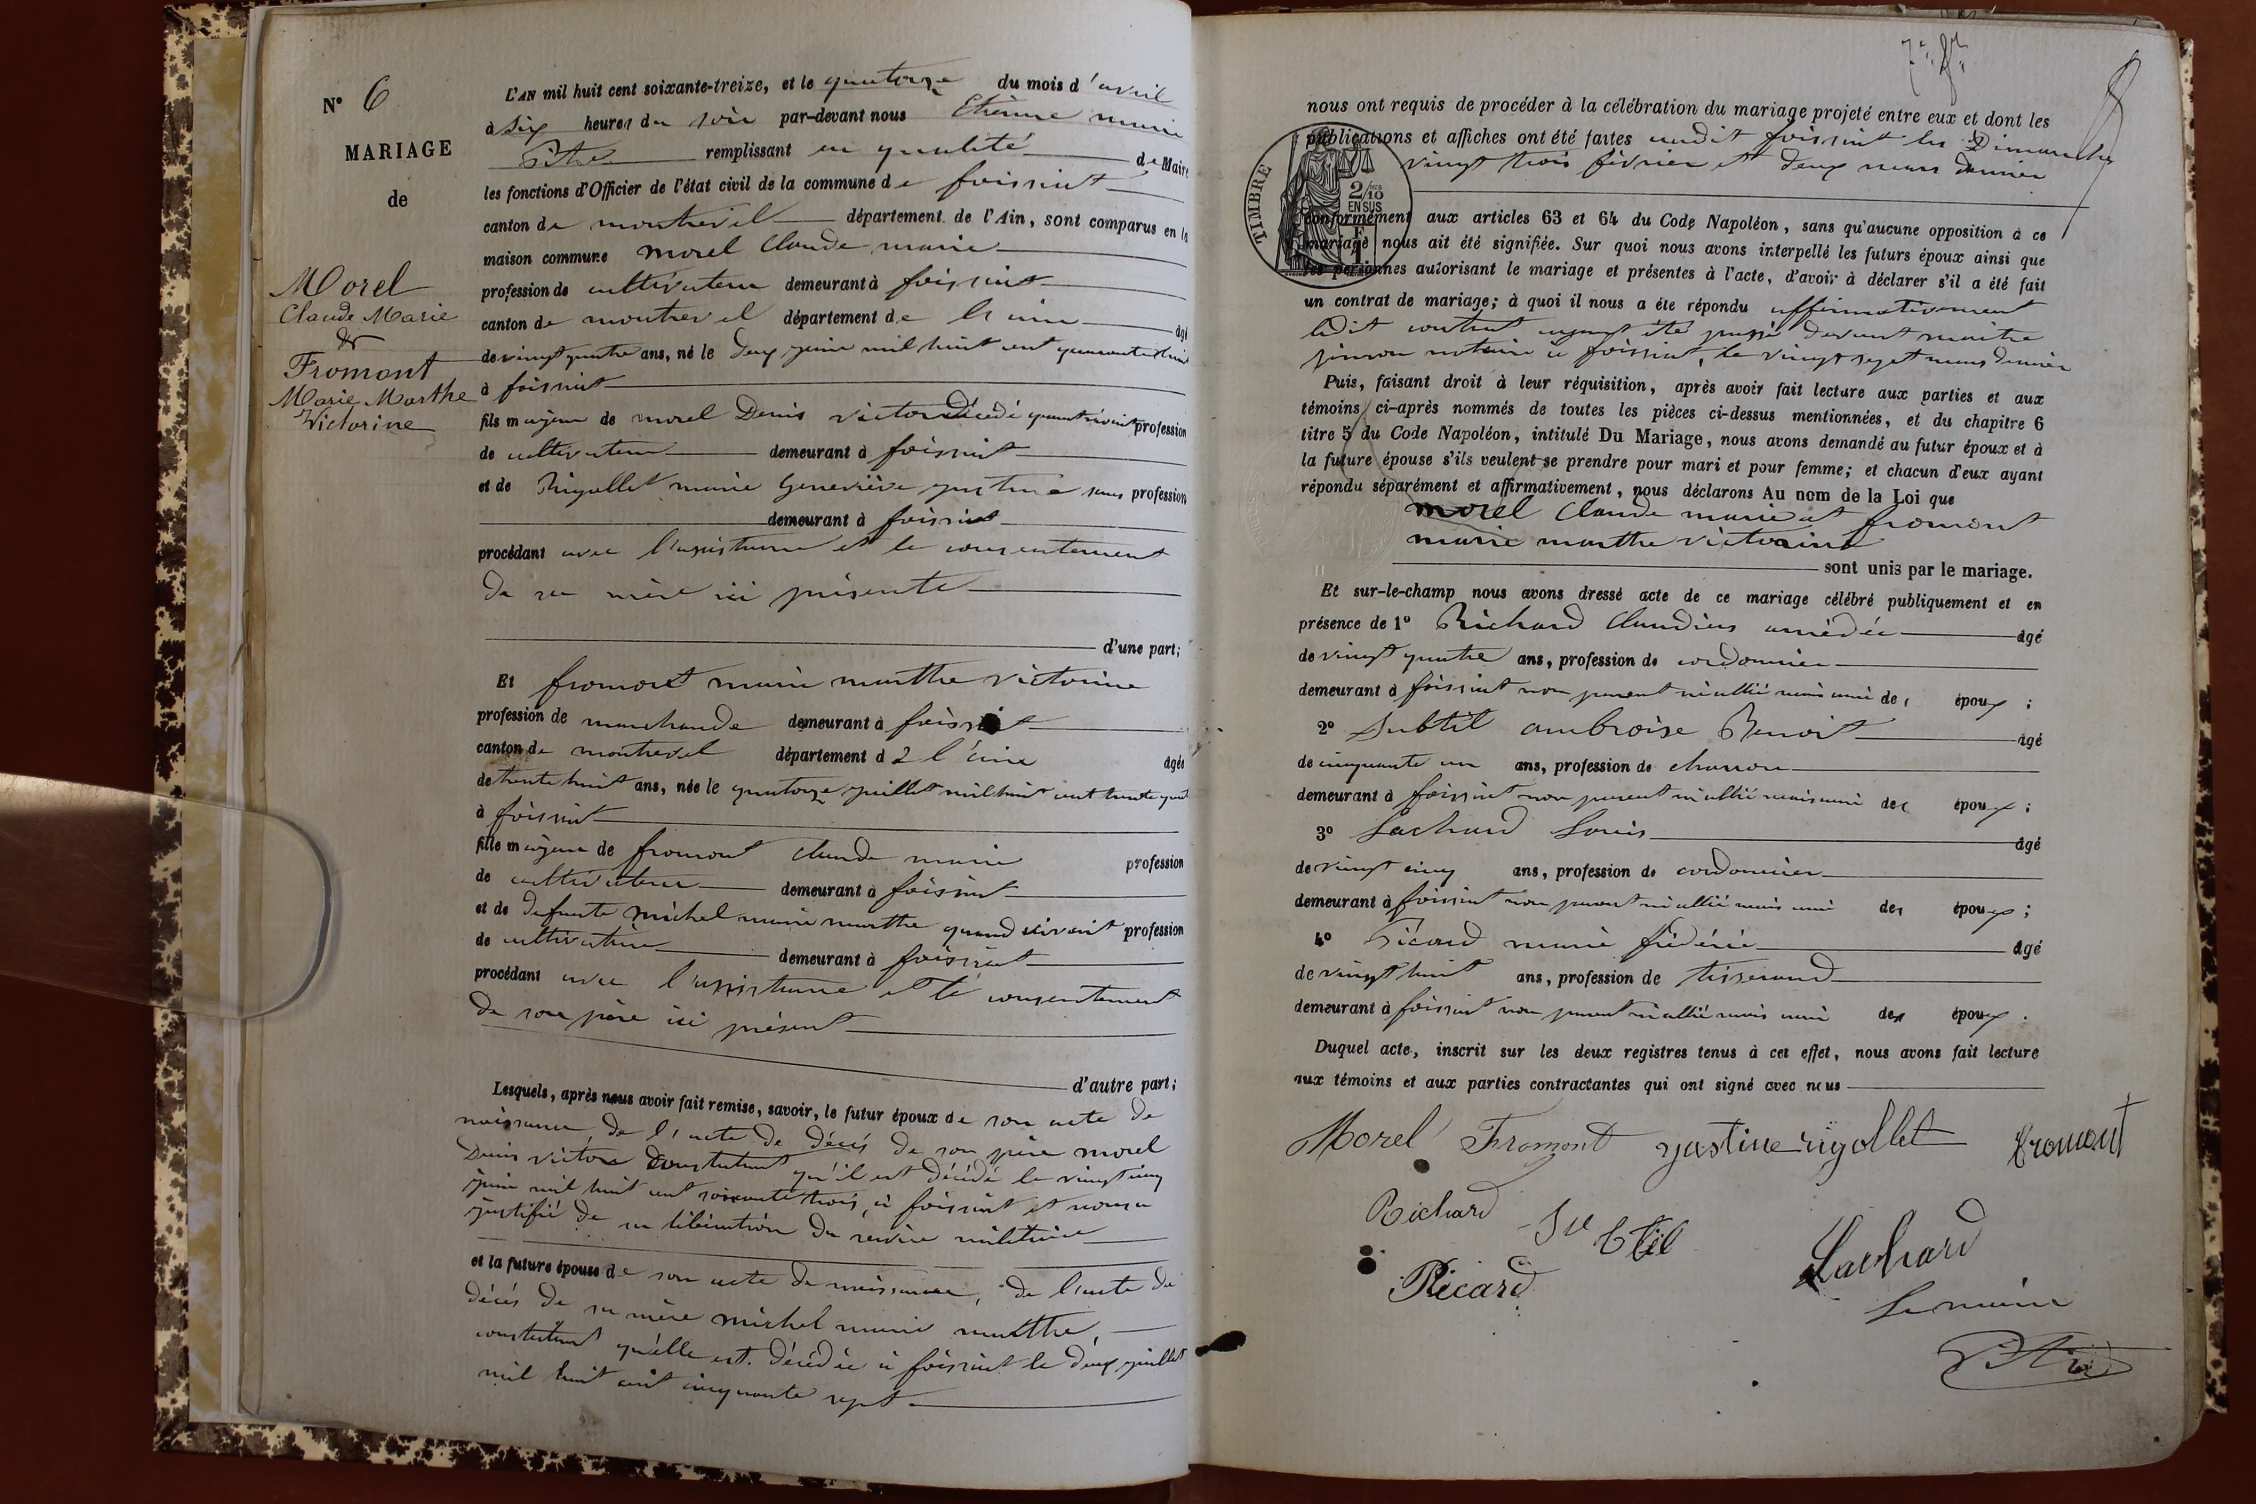 N° 6
MARIAGE
de
Morel
Claude Marie
&
Fromont
Marie Marthe
Victorine
L'AN mil huit cent soixante-treize, et le quatorze du mois d'avril
à six heures du soir par-devant nous Etienne marie
Pitre remplissant en qualité de Maire
les fonctions d'Officier de l'état civil de la commune de foissiat
canton de montrevel département de l'Ain, sont comparus en la
maison commune morel Claude marie
profession de cultivateur demeurant à foissiat
canton de montrevel département de l'ain âgé
de vingt quatre ans, né le deux juin mil huit cent quarante huit
à foissiat
fils majeur de morel Denis victor décédé quand vivait profession
de cultivateur demeurant à foissiat
et de Rigollet marie Geneviève justine sans profession
demeurant à foissiat
procédant avec l'assistance et le consentement
de sa mère ici présente
d'une part;
Et fromont marie marthe victorine
profession de marchande demeurant à foissiat
canton de montrevel département de l'ain âgée
de trente huit ans, née le quatorze juillet mil huit cent trente quatre
à foissiat
fille majeure de fromont claude marie profession
de cultivateur demeurant à foissiat
et de defunte michel marie marthe quand vivait profession
de cultivatrice demeurant à foissiat
procédant avec l'assistance et le consentement
de son père ici présent
d'autre part;
Lesquels, après nous avoir fait remise, savoir, le futur époux de son acte de
naissance de l'acte de décès de son père morel
Denis victor constatant qu'il est décédé le vingt cinq
juin mil huit cent soixante trois, à foissiat et nous a
justifié de sa libération du service militaire
et la future épouse de son acte de naissance, de l'acte de
décès de sa mère michel marie marthe,
constatant qu'elle est décédée à foissiat le deux juillet
mil huit cent cinquante sept
7e. f.
nous ont requis de procéder à la célébration du mariage projeté entre eux et dont les
publications et affiches ont été faites audit foissiat les Dimanche
vingt trois février et deux mars dernier
TIMBRE
2/10
EN SUS
conformément aux articles 63 et 64 du Code Napoléon, sans qu'aucune opposition à ce
mariage nous ait été signifiée. Sur quoi nous avons interpellé les futurs époux ainsi que
les personnes autorisant le mariage et présentes à l'acte, d'avoir à déclarer s'il a été fait
un contrat de mariage; à quoi il nous a été répondu affirmativement
ledit contrat ayant été passé devant maître
notaire à foissiat, le vingt sept mars dernier
Puis, faisant droit à leur réquisition, après avoir fait lecture aux parties et aux
témoins ci-après nommés de toutes les pièces ci-dessus mentionnées, et du chapitre 6
titre 5 du Code Napoléon, intitulé Du Mariage, nous avons demandé au futur époux et à
la future épouse s'ils veulent se prendre pour mari et pour femme; et chacun d'eux ayant
répondu séparément et affirmativement, nous déclarons Au nom de la Loi que
morel Claude marie et fromont
marie marthe victorine
sont unis par le mariage.
Et sur-le-champ nous avons dressé acte de ce mariage célébré publiquement et en
présence de 1° Richard Claudius amédée âgé
de vingt quatre ans, profession de cordonnier
demeurant à foissiat non parent ni allié mais ami des époux;
2° Subtil ambroise Benoit âgé
de cinquante un ans, profession de charron
demeurant à foissiat non parent ni allié mais ami des époux;
3° Lachard Louis âgé
de vingt cinq ans, profession de cordonnier
demeurant à foissiat non parent ni allié mais ami des époux;
4° Picard marie frédéric âgé
de vingt huit ans, profession de tisserand
demeurant à foissiat non parent ni allié mais ami des époux.
Duquel acte, inscrit sur les deux registres tenus à cet effet, nous avons fait lecture
aux témoins et aux parties contractantes qui ont signé avec nous
Morel Fromont justine rigollet fromont
Richard Subtil Lachard
Picard Le maire
Pitre